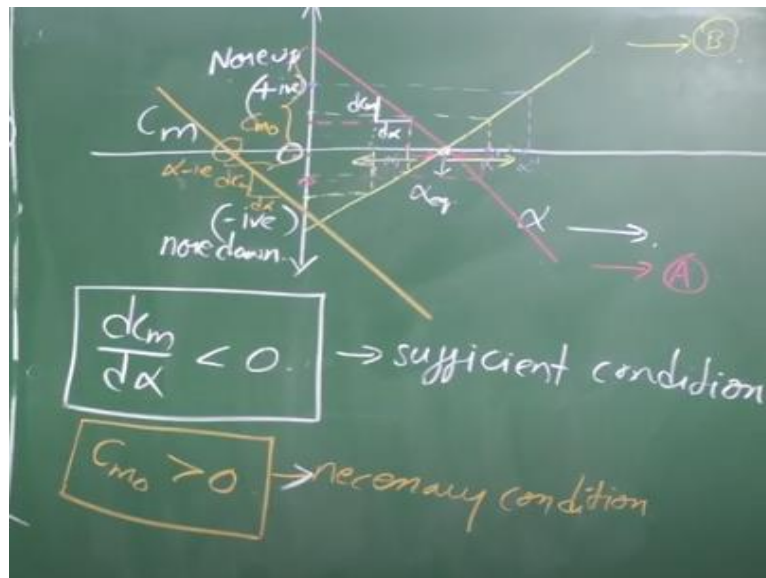 Nose up
B
(+ive)
Cm₀
dCm
dα
Cm
α-ive
dCm
dα
αeq
α
(-ive)
nose down
A
dCm/dα < 0 → sufficient condition
Cm₀ > 0 → necessary condition